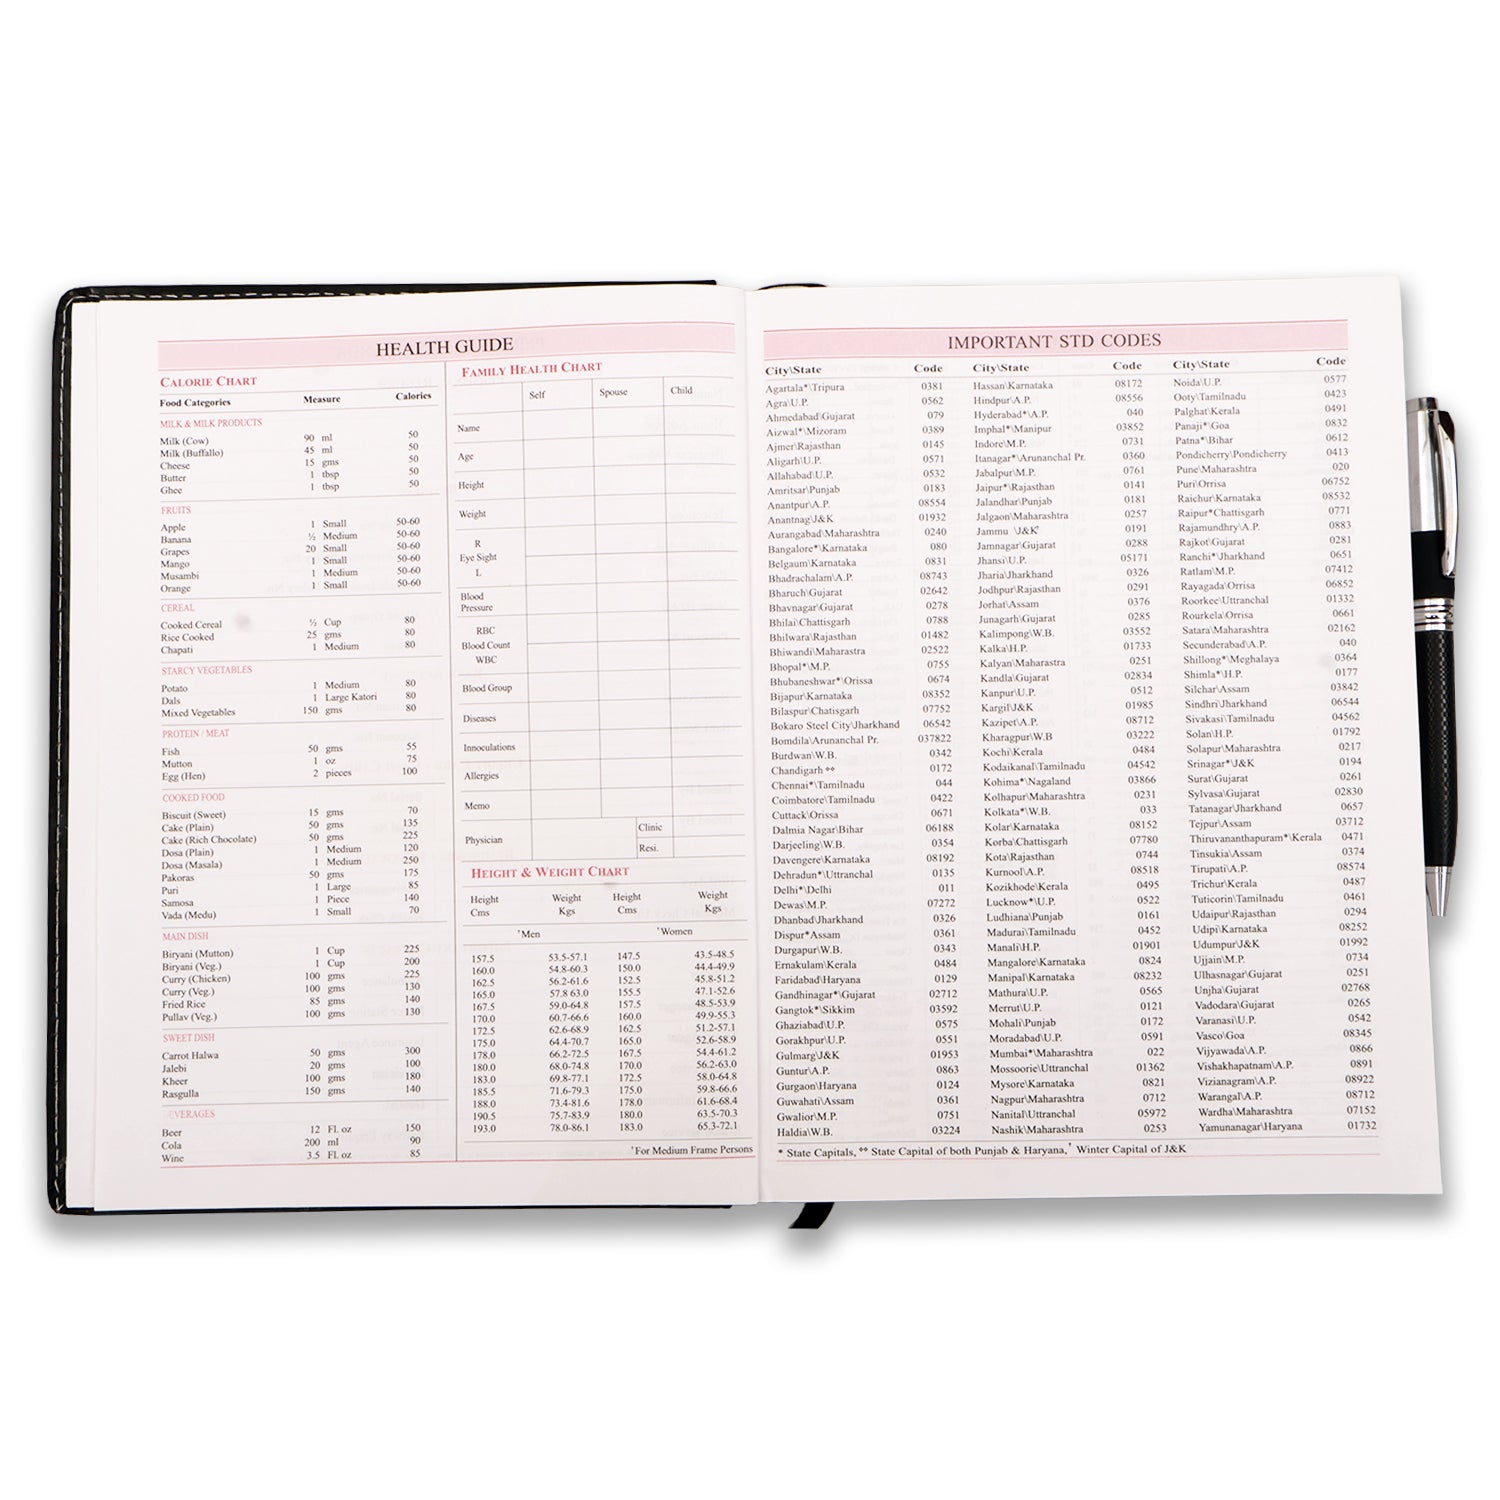 HEALTH GUIDE
CALORIE CHART
Food Categories Measure Calories
MILK & MILK PRODUCTS
Milk (Cow) 90 ml 50
Milk (Buffallo) 45 ml 50
Cheese 15 gms 50
Butter 1 tbsp 50
Ghee 1 tbsp 50
FRUITS
Apple 1 Small 50-60
Banana ½ Medium 50-60
Grapes 20 Small 50-60
Mango 1 Small 50-60
Musambi 1 Medium 50-60
Orange 1 Small 50-60
CEREAL
Cooked Cereal ½ Cup 80
Rice Cooked 25 gms 80
Chapati 1 Medium 80
STARCY VEGETABLES
Potato 1 Medium 80
Dals 1 Large Katori 80
Mixed Vegetables 150 gms 80
PROTEIN / MEAT
Fish 50 gms 55
Mutton 1 oz 75
Egg (Hen) 2 pieces 100
COOKED FOOD
Biscuit (Sweet) 15 gms 70
Cake (Plain) 50 gms 135
Cake (Rich Chocolate) 50 gms 225
Dosa (Plain) 1 Medium 120
Dosa (Masala) 1 Medium 250
Pakoras 50 gms 175
Puri 1 Large 85
Samosa 1 Piece 140
Vada (Medu) 1 Small 70
MAIN DISH
Biryani (Mutton) 1 Cup 225
Biryani (Veg.) 1 Cup 200
Curry (Chicken) 100 gms 225
Curry (Veg.) 100 gms 130
Fried Rice 85 gms 140
Pullav (Veg.) 100 gms 130
SWEET DISH
Carrot Halwa 50 gms 300
Jalebi 20 gms 100
Kheer 100 gms 180
Rasgulla 150 gms 140
EVERAGES
Beer 12 Fl. oz 150
Cola 200 ml 90
Wine 3.5 Fl. oz 85
FAMILY HEALTH CHART
Self Spouse Child
Name
Age
Height
Weight
R
Eye Sight
L
Blood
Pressure
RBC
Blood Count
WBC
Blood Group
Diseases
Innoculations
Allergies
Memo
Physician Clinic
Resi.
HEIGHT & WEIGHT CHART
Height Weight Height Weight
Cms Kgs Cms Kgs
†Men †Women
157.5 53.5-57.1 147.5 43.5-48.5
160.0 54.8-60.3 150.0 44.4-49.9
162.5 56.2-61.6 152.5 45.8-51.2
165.0 57.8 63.0 155.5 47.1-52.6
167.5 59.0-64.8 157.5 48.5-53.9
170.0 60.7-66.6 160.0 49.9-55.3
172.5 62.6-68.9 162.5 51.2-57.1
175.0 64.4-70.7 165.0 52.6-58.9
178.0 66.2-72.5 167.5 54.4-61.2
180.0 68.0-74.8 170.0 56.2-63.0
183.0 69.8-77.1 172.5 58.0-64.8
185.5 71.6-79.3 175.0 59.8-66.6
188.0 73.4-81.6 178.0 61.6-68.4
190.5 75.7-83.9 180.0 63.5-70.3
193.0 78.0-86.1 183.0 65.3-72.1
†For Medium Frame Persons
IMPORTANT STD CODES
City\State Code City\State Code City\State Code
Agartala*\Tripura 0381 Hassan\Karnataka 08172 Noida\U.P. 0577
Agra\U.P. 0562 Hindpur\A.P. 08556 Ooty\Tamilnadu 0423
Ahmedabad\Gujarat 079 Hyderabad*\A.P. 040 Palghat\Kerala 0491
Aizwal*\Mizoram 0389 Imphal*\Manipur 03852 Panaji*\Goa 0832
Ajmer\Rajasthan 0145 Indore\M.P. 0731 Patna*\Bihar 0612
Aligarh\U.P. 0571 Itanagar*\Arunanchal Pr. 0360 Pondicherry\Pondicherry 0413
Allahabad\U.P. 0532 Jabalpur\M.P. 0761 Pune\Maharashtra 020
Amritsar\Punjab 0183 Jaipur*\Rajasthan 0141 Puri\Orrisa 06752
Anantpur\A.P. 08554 Jalandhar\Punjab 0181 Raichur\Karnataka 08532
Anantnag\J&K 01932 Jalgaon\Maharashtra 0257 Raipur*\Chattisgarh 0771
Aurangabad\Maharashtra 0240 Jammu \J&K† 0191 Rajamundhry\A.P. 0883
Bangalore*\Karnataka 080 Jamnagar\Gujarat 0288 Rajkot\Gujarat 0281
Belgaum\Karnataka 0831 Jhansi\U.P. 05171 Ranchi*\Jharkhand 0651
Bhadrachalam\A.P. 08743 Jharia\Jharkhand 0326 Ratlam\M.P. 07412
Bharuch\Gujarat 02642 Jodhpur\Rajasthan 0291 Rayagada\Orrisa 06852
Bhavnagar\Gujarat 0278 Jorhat\Assam 0376 Roorkee\Uttranchal 01332
Bhilai\Chattisgarh 0788 Junagarh\Gujarat 0285 Rourkela\Orrisa 0661
Bhilwara\Rajasthan 01482 Kalimpong\W.B. 03552 Satara\Maharashtra 02162
Bhiwandi\Maharastra 02522 Kalka\H.P. 01733 Secunderabad\A.P. 040
Bhopal*\M.P. 0755 Kalyan\Maharastra 0251 Shillong*\Meghalaya 0364
Bhubaneshwar*\Orissa 0674 Kandla\Gujarat 02834 Shimla*\H.P. 0177
Bijapur\Karnataka 08352 Kanpur\U.P. 0512 Silchar\Assam 03842
Bilaspur\Chatisgarh 07752 Kargil\J&K 01985 Sindhri\Jharkhand 06544
Bokaro Steel City\Jharkhand 06542 Kazipet\A.P. 08712 Sivakasi\Tamilnadu 04562
Bomdila\Arunanchal Pr. 037822 Kharagpur\W.B 03222 Solan\H.P. 01792
Burdwan\W.B. 0342 Kochi\Kerala 0484 Solapur\Maharashtra 0217
Chandigarh ** 0172 Kodaikanal\Tamilnadu 04542 Srinagar*\J&K 0194
Chennai*\Tamilnadu 044 Kohima*\Nagaland 03866 Surat\Gujarat 0261
Coimbatore\Tamilnadu 0422 Kolhapur\Maharashtra 0231 Sylvasa\Gujarat 02830
Cuttack\Orissa 0671 Kolkata*\W.B. 033 Tatanagar\Jharkhand 0657
Dalmia Nagar\Bihar 06188 Kolar\Karnataka 08152 Tejpur\Assam 03712
Darjeeling\W.B. 0354 Korba\Chattisgarh 07780 Thiruvananthapuram*\Kerala 0471
Davengere\Karnataka 08192 Kota\Rajasthan 0744 Tinsukia\Assam 0374
Dehradun*\Uttranchal 0135 Kurnool\A.P. 08518 Tirupati\A.P. 08574
Delhi*\Delhi 011 Kozikhode\Kerala 0495 Trichur\Kerala 0487
Dewas\M.P. 07272 Lucknow*\U.P. 0522 Tuticorin\Tamilnadu 0461
Dhanbad\Jharkhand 0326 Ludhiana\Punjab 0161 Udaipur\Rajasthan 0294
Dispur*Assam 0361 Madurai\Tamilnadu 0452 Udipi\Karnataka 08252
Durgapur\W.B. 0343 Manali\H.P. 01901 Udumpur\J&K 01992
Ernakulam\Kerala 0484 Mangalore\Karnataka 0824 Ujjain\M.P. 0734
Faridabad\Haryana 0129 Manipal\Karnataka 08232 Ulhasnagar\Gujarat 0251
Gandhinagar*\Gujarat 02712 Mathura\U.P. 0565 Unjha\Gujarat 02768
Gangtok*\Sikkim 03592 Merrut\U.P. 0121 Vadodara\Gujarat 0265
Ghaziabad\U.P. 0575 Mohali\Punjab 0172 Varanasi\U.P. 0542
Gorakhpur\U.P. 0551 Moradabad\U.P. 0591 Vasco\Goa 08345
Gulmarg\J&K 01953 Mumbai*\Maharashtra 022 Vijyawada\A.P. 0866
Guntur\A.P. 0863 Mossoorie\Uttranchal 01362 Vishakhapatnam\A.P. 0891
Gurgaon\Haryana 0124 Mysore\Karnataka 0821 Vizianagram\A.P. 08922
Guwahati\Assam 0361 Nagpur\Maharashtra 0712 Warangal\A.P. 08712
Gwalior\M.P. 0751 Nanital\Uttranchal 05972 Wardha\Maharashtra 07152
Haldia\W.B. 03224 Nashik\Maharashtra 0253 Yamunanagar\Haryana 01732
* State Capitals, ** State Capital of both Punjab & Haryana,† Winter Capital of J&K